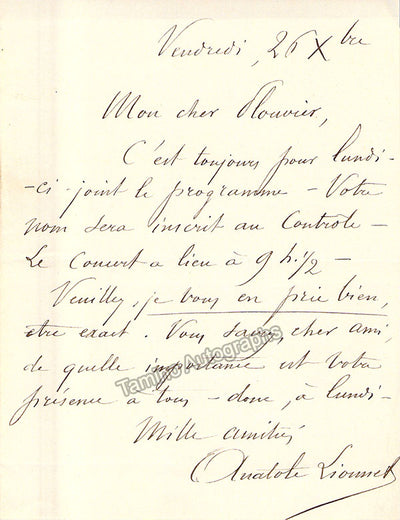 Vendredi, 26 Xbre
Mon cher Plouvier,
C'est toujours pour lundi -
- ci joint le programme - Votre
nom sera inscrit au Contrôle -
Le Concert a lieu à 9 h. 1/2 -
Veuillez, je vous en prie bien,
être exact. Vous savez, cher ami,
de quelle importance est votre
présence à tous - donc, à lundi -
Mille amitiés
Anatole Lionnet
Tamino Autographs